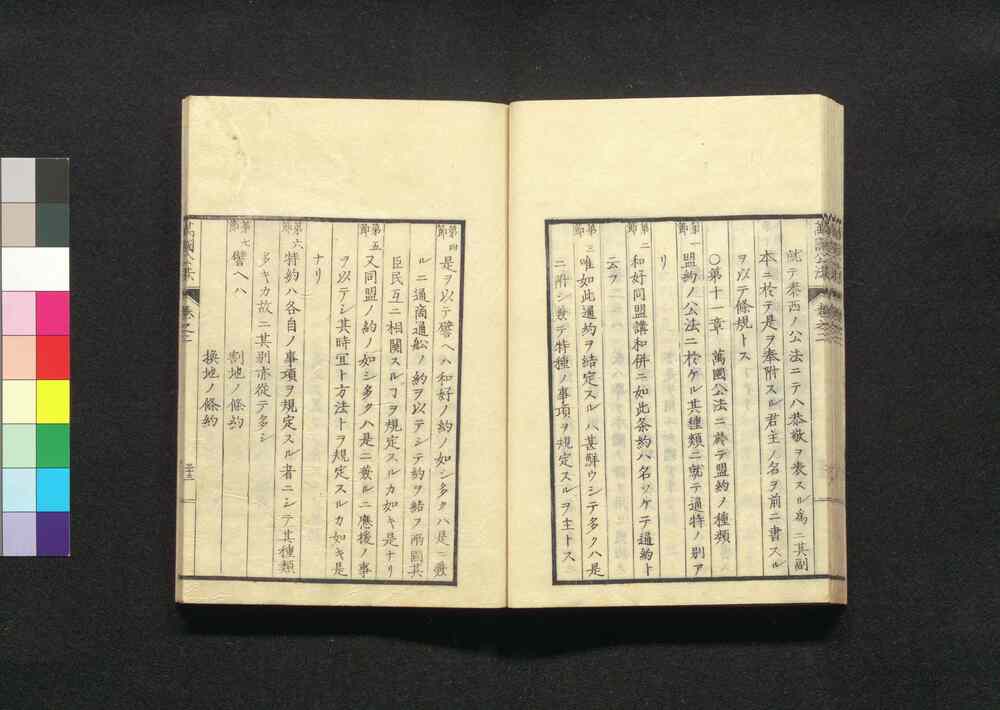 就テ泰西ノ公法ニテハ恭敬ヲ表スル為ニ其副
本ニ於テ是ヲ奉附スル君主ノ名ヲ前ニ書スル
ヲ以テ條規トス
〇第十一章 萬國公法ニ於テ盟約ノ種類
第一節 盟約ノ公法ニ於ケル其種類ニ就テ通特ノ別ア
リ
第二節 和好同盟講和併ニ如此条約ハ名ツケテ通約ト
云フ
第三節 唯如此通約ヲ結定スルハ甚鮮ウシテ多クハ是
ニ附シ敷テ特種ノ事項ヲ規定スルヲ主トス
第四節 是ヲ以テ譬ヘハ和好ノ約ノ如シ多クハ是ニ敷
ルニ通商通舩ノ約ヲ以テシテ約ヲ結フ兩國其
臣民互ニ相関スルヿヲ規定スルカ如キ是ナリ
第五節 又同盟ノ約ノ如シ多クハ是ニ敷ルニ應援ノ事
ヲ以テシ其時宜ト方法トヲ規定スルカ如キ是
ナリ
第六節 特約ハ各自ノ事項ヲ規定スル者ニシテ其種類
多キカ故ニ其別亦從テ多シ
第七節 譬ヘハ
割地ノ條約
換地ノ條約
萬國公法 巻之三